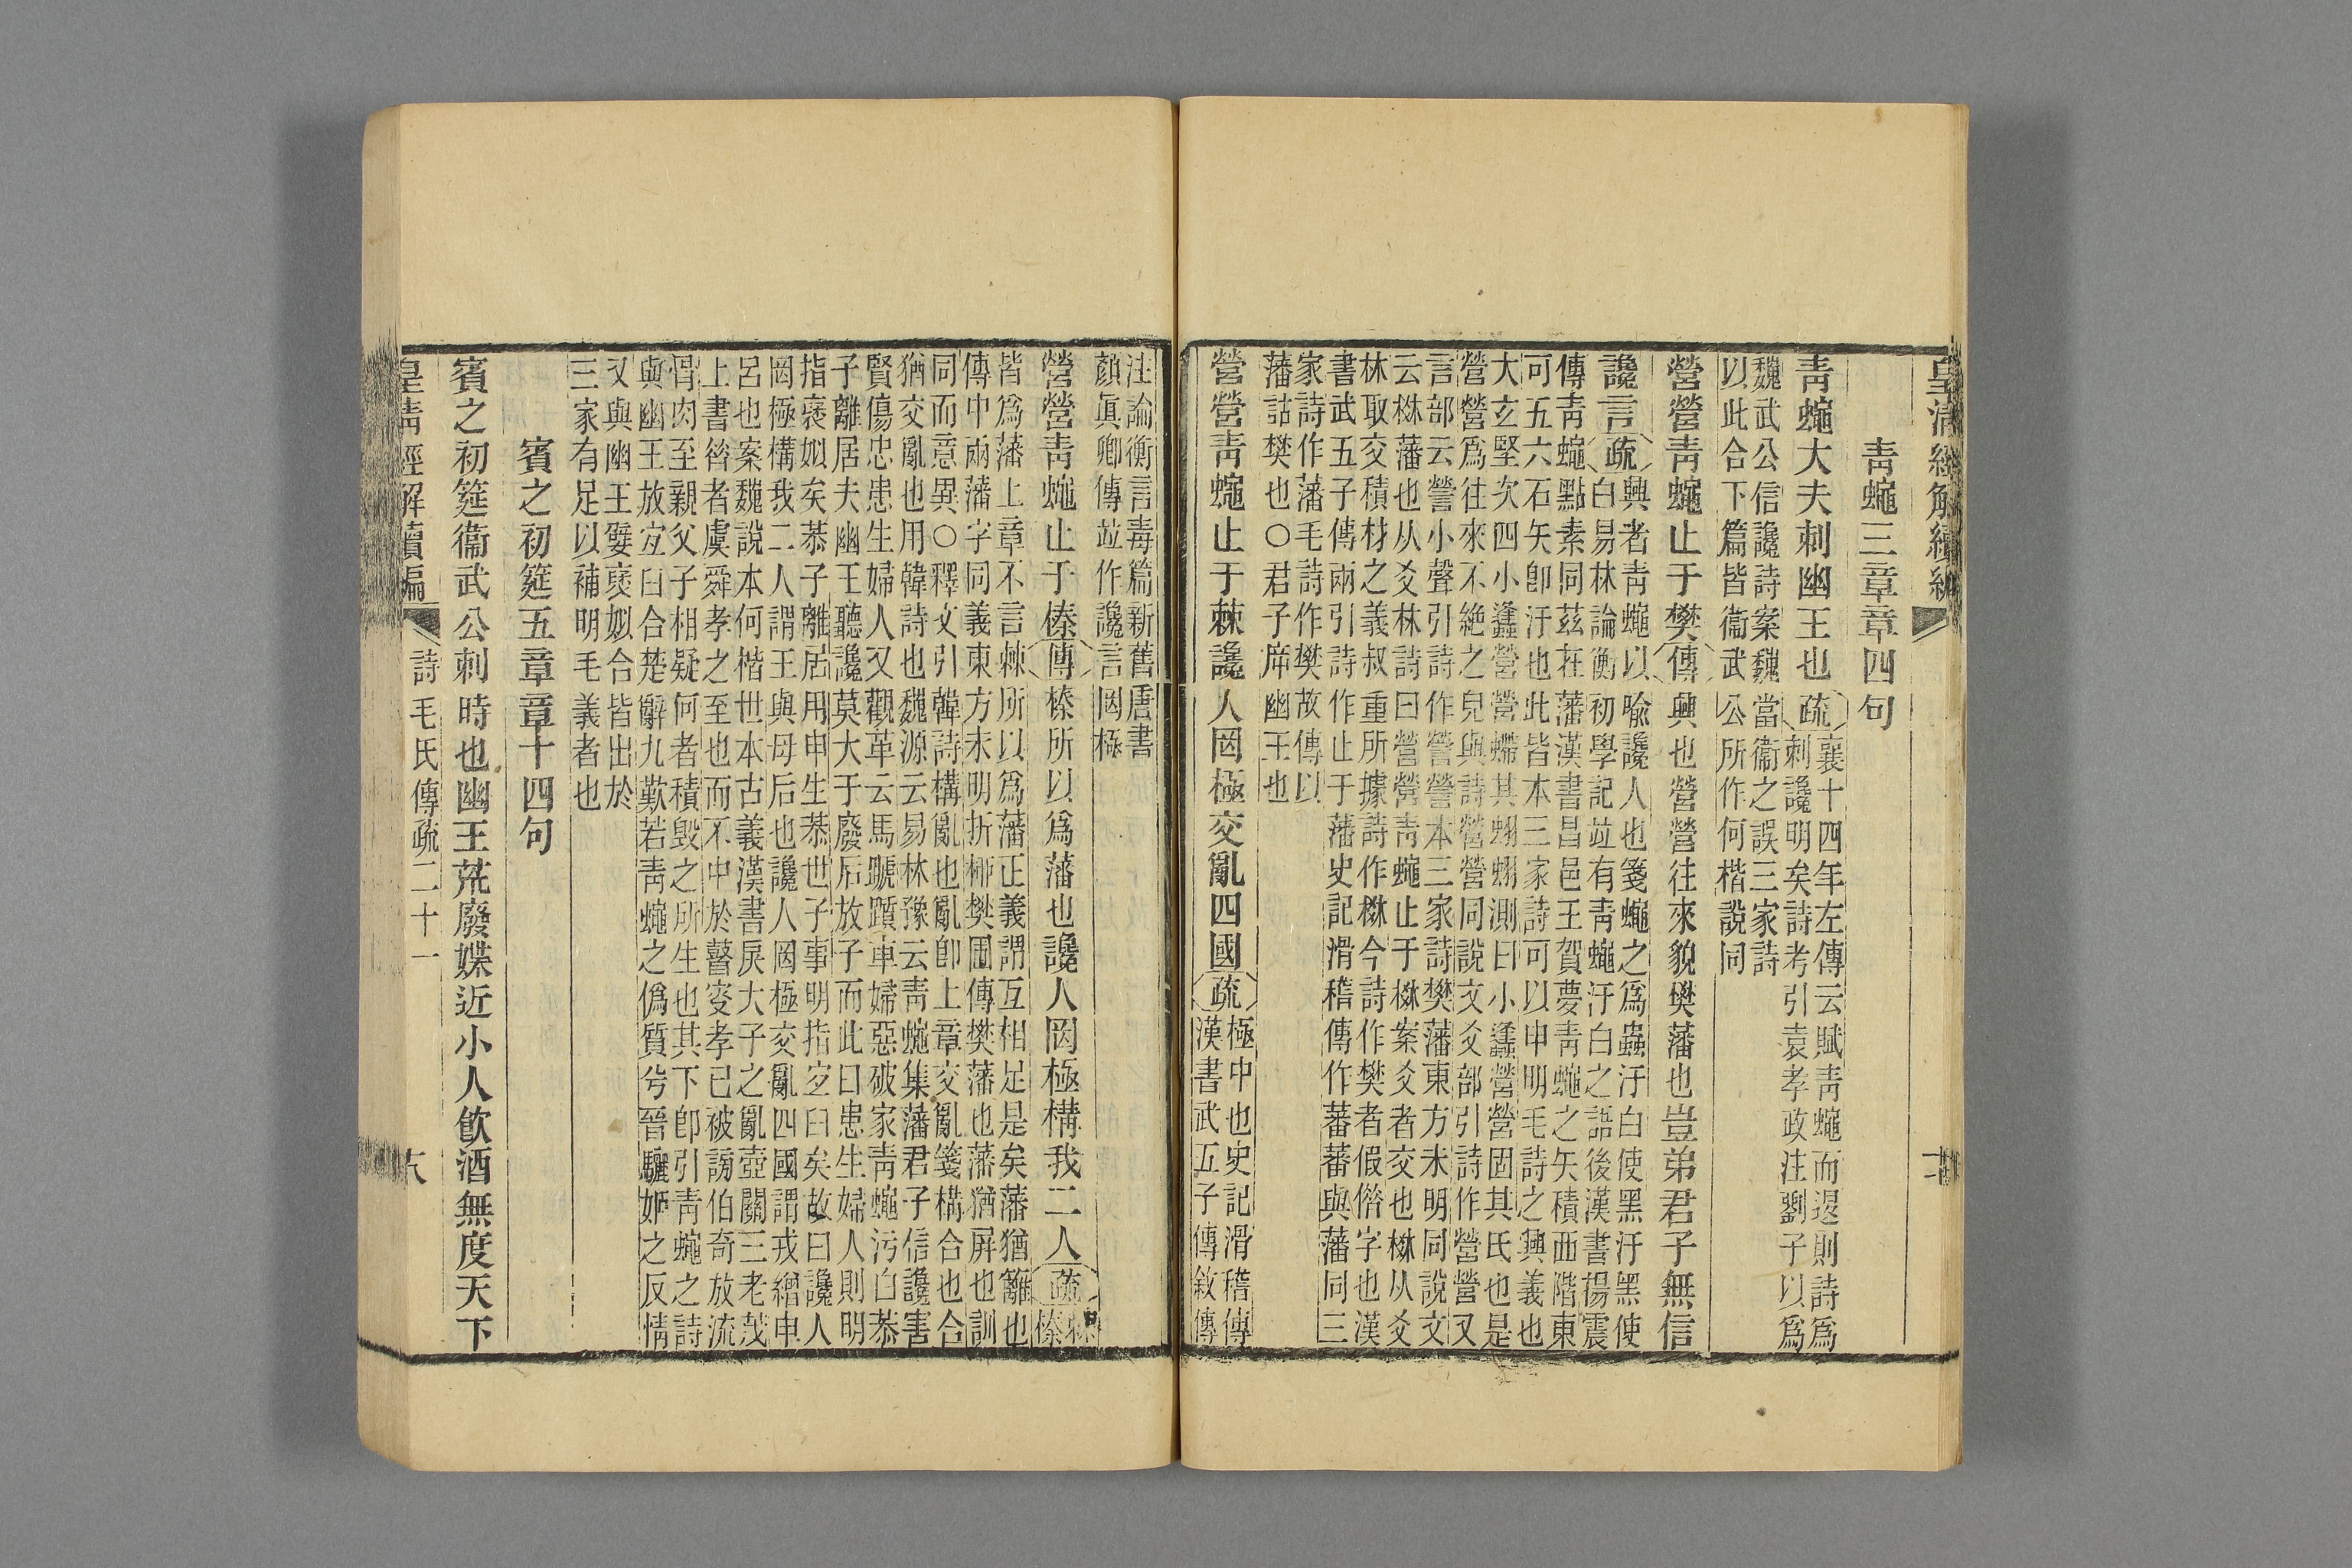 皇清經解續編
靑蠅三章章四句
靑蠅大夫刺幽王也疏襄十四年左傳云賦靑蠅而退則詩爲
刺讒明矣詩考引袁孝政注劉子以爲
魏武公信讒詩案魏當衞之誤三家詩
以此合下篇皆衞武公所作何楷說同
營營靑蠅止于樊傳興也營營往來貌樊藩也豈弟君子無信
讒言疏興者靑蠅以喩讒人也箋蠅之爲蟲汙白使黑汙黑使
白易林論衡初學記竝有靑蠅汙白之語後漢書揚震
傳靑蠅點素同茲在藩漢書昌邑王賀夢靑蠅之矢積西階東
可五六石矢卽汙也此皆本三家詩可以申明毛詩之興義也
大玄堅次四小蠭營營蠕其蛡蛡測曰小蠭營營固其氏也是
營營爲往來不絶之皃與詩營營同說文爻部引詩作營營又
言部云營小聲引詩作營營本三家詩樊藩東方未明同說文
云棥藩也从爻林詩曰營營靑蠅止于棥案爻者交也棥从爻
林取交積材之義叔重所據詩作棥今詩作樊者假偺字也漢
書武五子傳兩引詩作止于藩史記滑稽傳作蕃蕃與藩同三
家詩作藩毛詩作樊故傳以
藩詁樊也○君子斥幽王也
營營靑蠅止于棘讒人罔極交亂四國疏極中也史記滑稽傳
漢書武五子傳敘傳
注論衡言毒篇新舊唐書
顏眞卿傳竝作讒言罔極
營營靑蠅止于榛傳榛所以爲藩也讒人罔極構我二人疏棘
榛
皆爲藩上章不言棘所以爲藩正義謂互相足是矣藩猶籬也
傳中兩藩字同義東方未明折桺樊圃傳樊藩也藩猶屏也訓
同而意異○釋文引韓詩構亂也亂卽上章交亂箋構合也合
猶交亂也用韓詩也魏源云易林豫云靑蠅集藩君子信讒害
賢傷忠患生婦人又觀革云馬蹏躓車婦惡破家靑蠅污白恭
子離居夫幽王聽讒莫大于廢后放子而此曰患生婦人則明
指襃姒矣恭子離居用申生恭世子事明指宜臼矣故曰讒人
罔極構我二人謂王與母后也讒人罔極交亂四國謂戎繒申
呂也案魏說本何楷世本古義漢書戾大子之亂壺關三老茂
上書咎者虞舜孝之至也而不中於瞽叟孝已被謗伯奇放流
骨肉至親父子相疑何者積毀之所生也其下卽引靑蠅之詩
與幽王放宜臼合楚辭九歎若靑蠅之僞質兮晉驪姬之反情
又與幽王嬖襃姒合皆出於
三家有足以補明毛義者也
賓之初筵五章章十四句
賓之初筵衞武公刺時也幽王荒廢媟近小人飮酒無度天下
皇淸經解續編 詩毛氏傳疏二十一